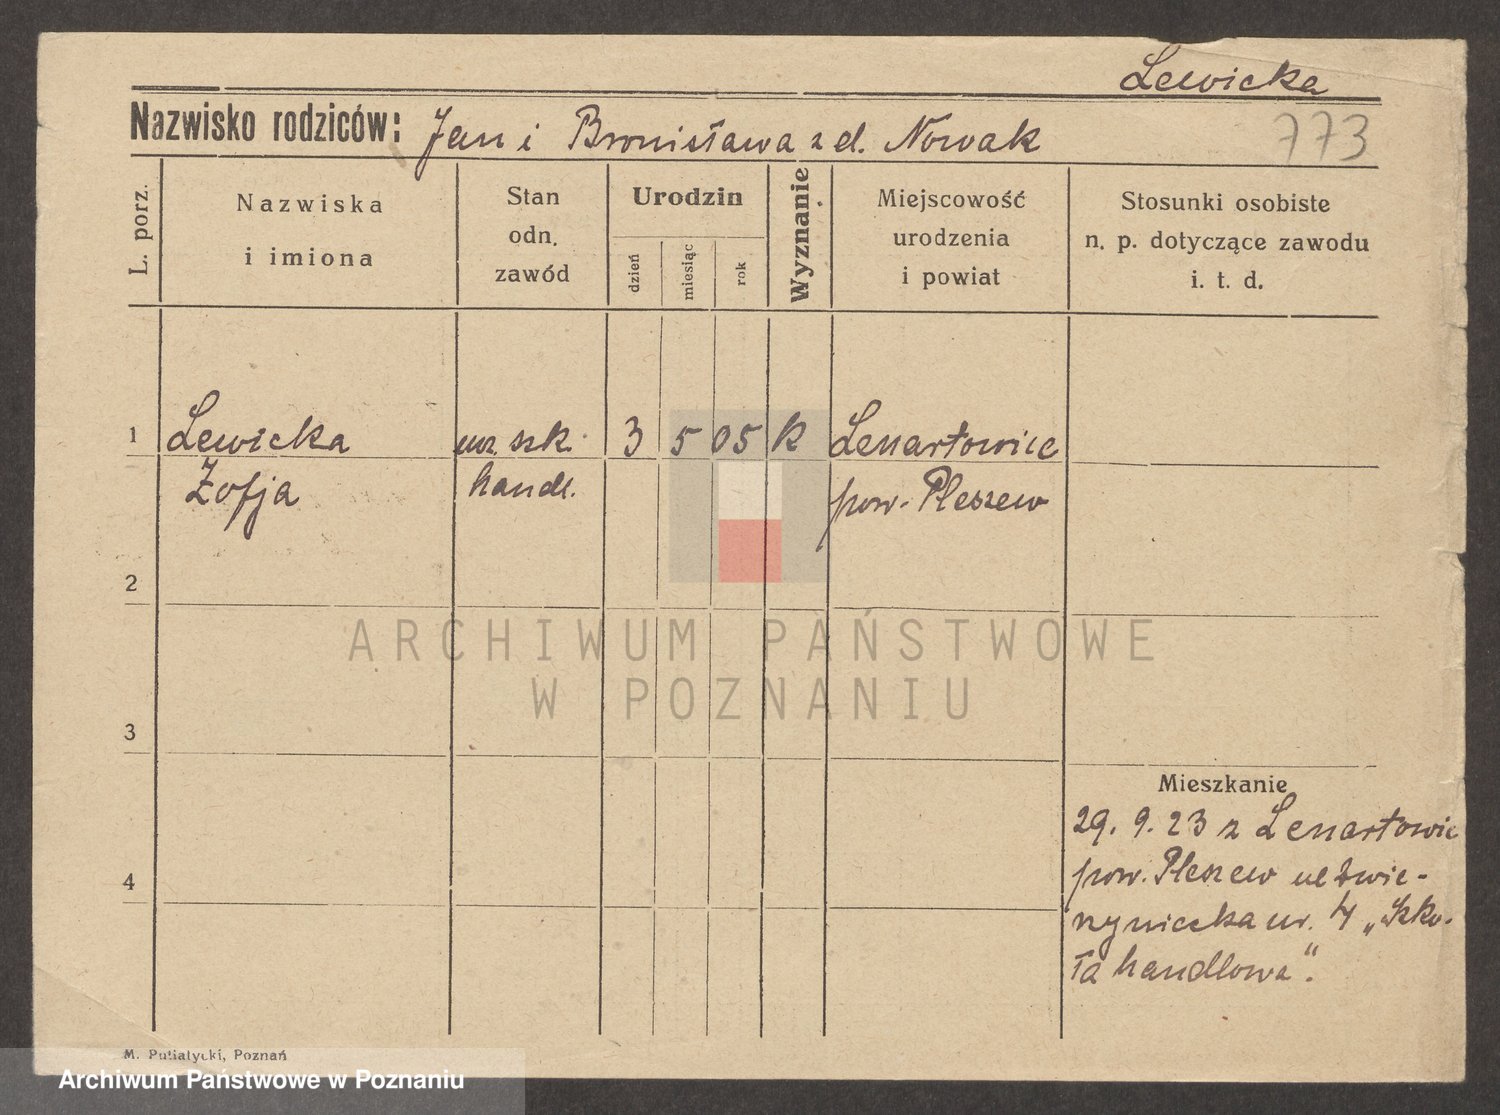 Lewicka
Nazwisko rodziców: Jan i Bronisława z d. Nowak
773
L. porz.
Nazwiska
i imiona
Stan
odn.
zawód
Urodzin
dzień
miesiąc
rok
Wyznanie
Miejscowość
urodzenia
i powiat
Stosunki osobiste
n. p. dotyczące zawodu
i. t. d.
1 Lewicka ucz. szk. 3 5 05 k Lenartowice
Zofja handl. pow. Pleszew
2
ARCHIWUM PAŃSTWOWE
W POZNANIU
3
Mieszkanie
29. 9. 23 z Lenartowic
pow. Pleszew ul Zwie-
rzyniecka nr. 4 „Szko-
ła handlowa".
4
M. Putiatycki, Poznań
Archiwum Państwowe w Poznaniu